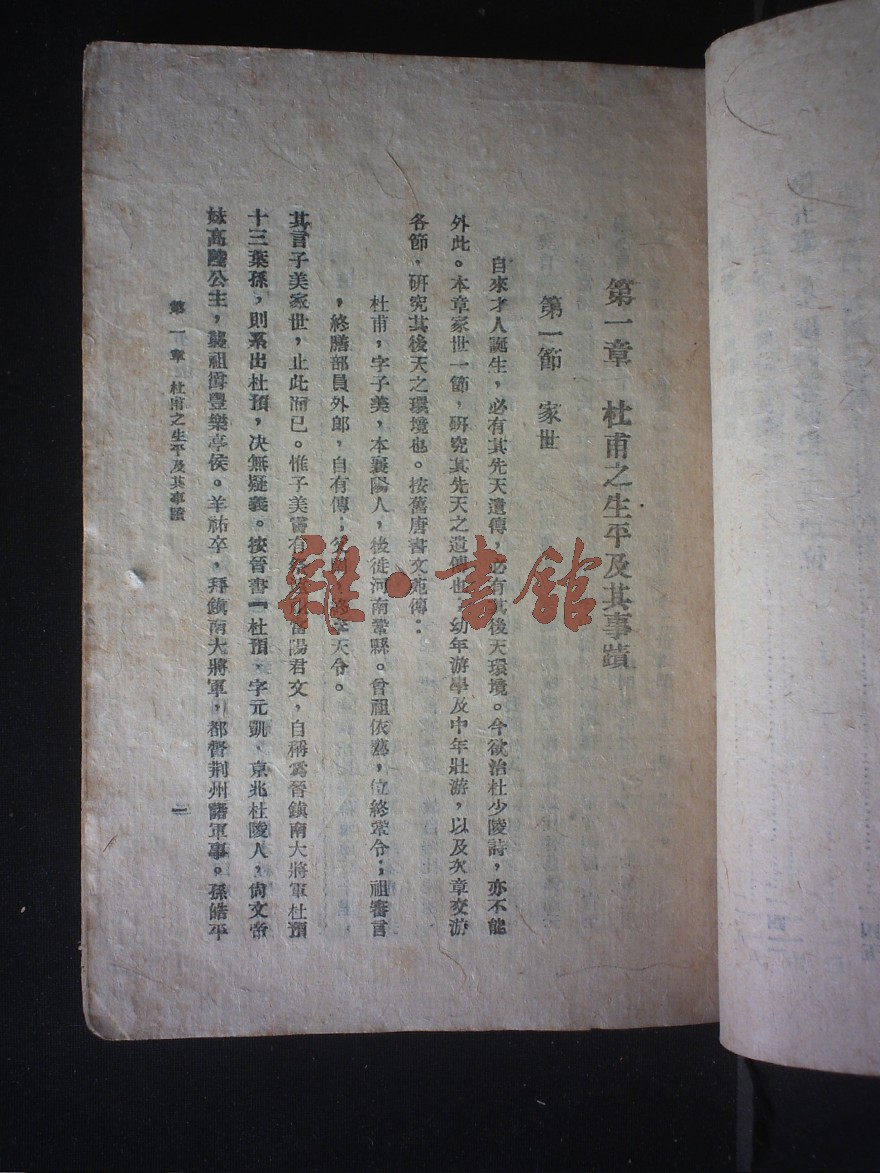 第一章　杜甫之生平及其事蹟
第一節　家世
自來才人誕生，必有其先天遺傳，必有其後天環境。今欲治杜少陵詩，亦不能
外此。本章家世一節，研究其先天之遺傳也；幼年游學及中年壯游，以及次章交游
各節，研究其後天之環境也。按舊唐書文苑傳：
杜甫，字子美，本襄陽人，後徙河南鞏縣。曾祖依藝，位終鞏令；祖審言
，終膳部員外郎，自有傳；父閑，終奉天令。
其言子美家世，止此而已。惟子美嘗有祭遠祖當陽君文，自稱為晉鎮南大將軍杜預
十三葉孫，則系出杜預，決無疑義。按晉書「杜預，字元凱，京兆杜陵人，尚文帝
妹高陸公主，襲祖爵豐樂亭侯。羊祜卒，拜鎮南大將軍，都督荆州諸軍事。孫皓平
第一章　杜甫之生平及其事蹟
一
雜·書館
四
四五